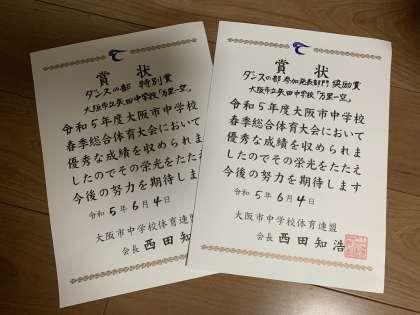 賞状
ダンスの部 特別賞
大阪市立矢田中学校「万里一空」
令和5年度大阪市中学校
春季総合体育大会において
優秀な成績を収められま
したのでその栄光をたたえ
今後の努力を期待します
令和5年6月4日
大阪市中学校体育連盟
会長 西田知
賞状
ダンスの部 参加発表部門 奨励賞
大阪市立矢田中学校「万里一空」
令和5年度大阪市中学校
春季総合体育大会において
優秀な成績を収められま
したのでその栄光をたたえ
今後の努力を期待します
令和5年6月4日
大阪市中学校体育連盟
会長 西田知浩